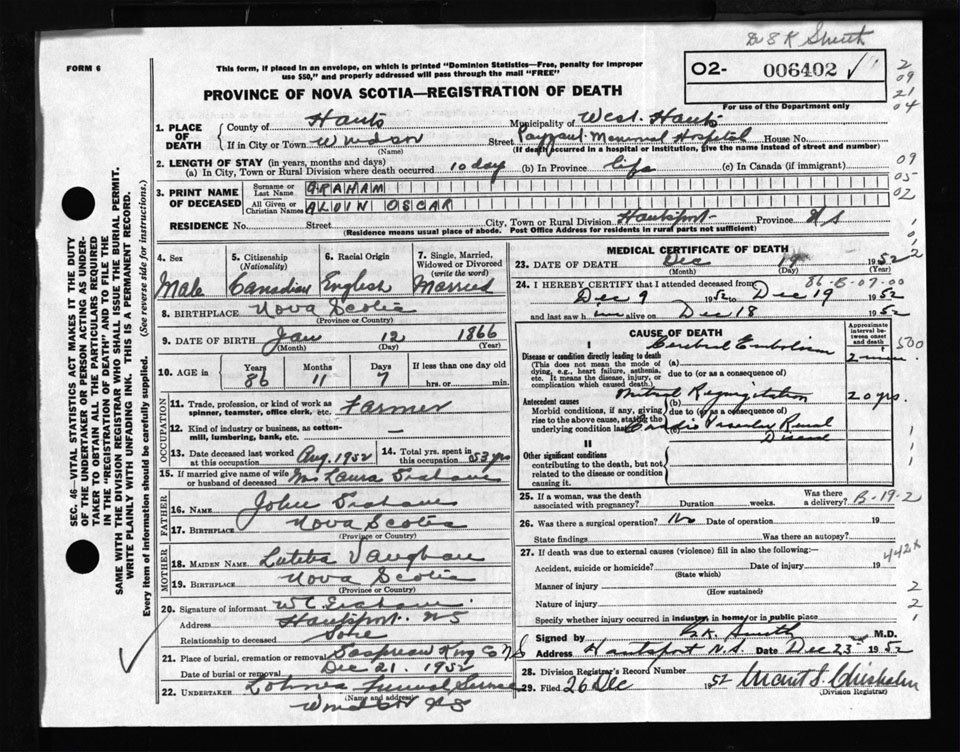 Dr E K Smith
FORM 6
This form, if placed in an envelope, on which is printed "Dominion Statistics—Free, penalty for improper
use $50," and properly addressed will pass through the mail "FREE"
O2- 006402
For use of the Department only
PROVINCE OF NOVA SCOTIA—REGISTRATION OF DEATH
2
09
21
04
09
05
02
1. PLACE OF DEATH
County of Hants Municipality of West Hants
If in City or Town Windsor Street Payzant Memorial Hospital House No.
(Name) (If death occurred in a hospital or institution, give the name instead of street and number)
2. LENGTH OF STAY (in years, months and days)
(a) In City, Town or Rural Division where death occurred 10 day (b) In Province life (c) In Canada (if immigrant)
3. PRINT NAME OF DECEASED
Surname or Last Name GRAHAM
All Given or Christian Names ALVIN OSCAR
RESIDENCE No. Street City, Town or Rural Division Hantsport Province NS
(Residence means usual place of abode. Post Office Address for residents in rural parts not sufficient)
4. Sex Male
5. Citizenship (Nationality) Canadian
6. Racial Origin English
7. Single, Married, Widowed or Divorced (write the word) Married
8. BIRTHPLACE Nova Scotia
(Province or Country)
9. DATE OF BIRTH Jan 12 1866
(Month) (Day) (Year)
10. AGE in Years 86 Months 11 Days 7 If less than one day old
hrs. or min.
OCCUPATION
11. Trade, profession, or kind of work as
spinner, teamster, office clerk, etc. Farmer
12. Kind of industry or business, as cotton-
mill, lumbering, bank, etc. —
13. Date deceased last worked at this occupation Aug. 1952
14. Total yrs. spent in this occupation 53 yrs
15. If married give name of wife
or husband of deceased Mrs Laura Graham
FATHER
16. Name John Graham
17. Birthplace Nova Scotia
(Province or Country)
MOTHER
18. Maiden Name Vaughan
19. Birthplace Nova Scotia
(Province or Country)
20. Signature of informant W C Graham
Address Hantsport. NS
Relationship to deceased
21. Place of burial, cremation or removal King Co NS
Date of burial or removal Dec 21. 1952
22. Undertaker Funeral Service
(Name and address)
Windsor NS
MEDICAL CERTIFICATE OF DEATH
23. DATE OF DEATH Dec 19 1952
(Month) (Day) (Year)
86-B-07-00
24. I HEREBY CERTIFY that I attended deceased from
Dec 9 1952 to Dec 19 1952
and last saw him alive on Dec 18 1952
CAUSE OF DEATH
Approximate interval between onset and death
500
I
Disease or condition directly leading to death
(This does not mean the mode of dying, e.g., heart failure, asthenia, etc. It means the disease, injury, or complication which caused death.)
Cerebral Embolism
(a)
due to (or as a consequence of)
Antecedent causes
Morbid conditions, if any, giving rise to the above cause, stating the underlying condition last
Mitral Regurgitation 20 yrs.
(b)
due to (or as a consequence of)
(c) Cardio Renal
Disease
II
Other significant conditions
contributing to the death, but not related to the disease or condition causing it.
25. If a woman, was the death
associated with pregnancy? Duration weeks. Was there a delivery?
B-19-2
26. Was there a surgical operation? No Date of operation 19
State findings Was there an autopsy?
27. If death was due to external causes (violence) fill in also the following:—
Accident, suicide or homicide? Date of injury 19
(State which)
442x
Manner of injury
(How sustained)
Nature of injury
Specify whether injury occurred in industry, in home or in public place
Signed by E.K. Smith M.D.
Address Hantsport N.S. Date Dec 23 1952
28. Division Registrar's Record Number
29. Filed 26 Dec 1952 Chisholm
(Division Registrar)
SEC. 46—VITAL STATISTICS ACT MAKES IT THE DUTY
OF THE UNDERTAKER OR PERSON ACTING AS UNDER-
TAKER TO OBTAIN ALL THE PARTICULARS REQUIRED
IN THE "REGISTRATION OF DEATH" AND TO FILE THE
SAME WITH THE DIVISION REGISTRAR WHO SHALL ISSUE THE BURIAL PERMIT.
WRITE PLAINLY WITH UNFADING INK. THIS IS A PERMANENT RECORD.
Every item of information should be carefully supplied. (See reverse side for instructions.)